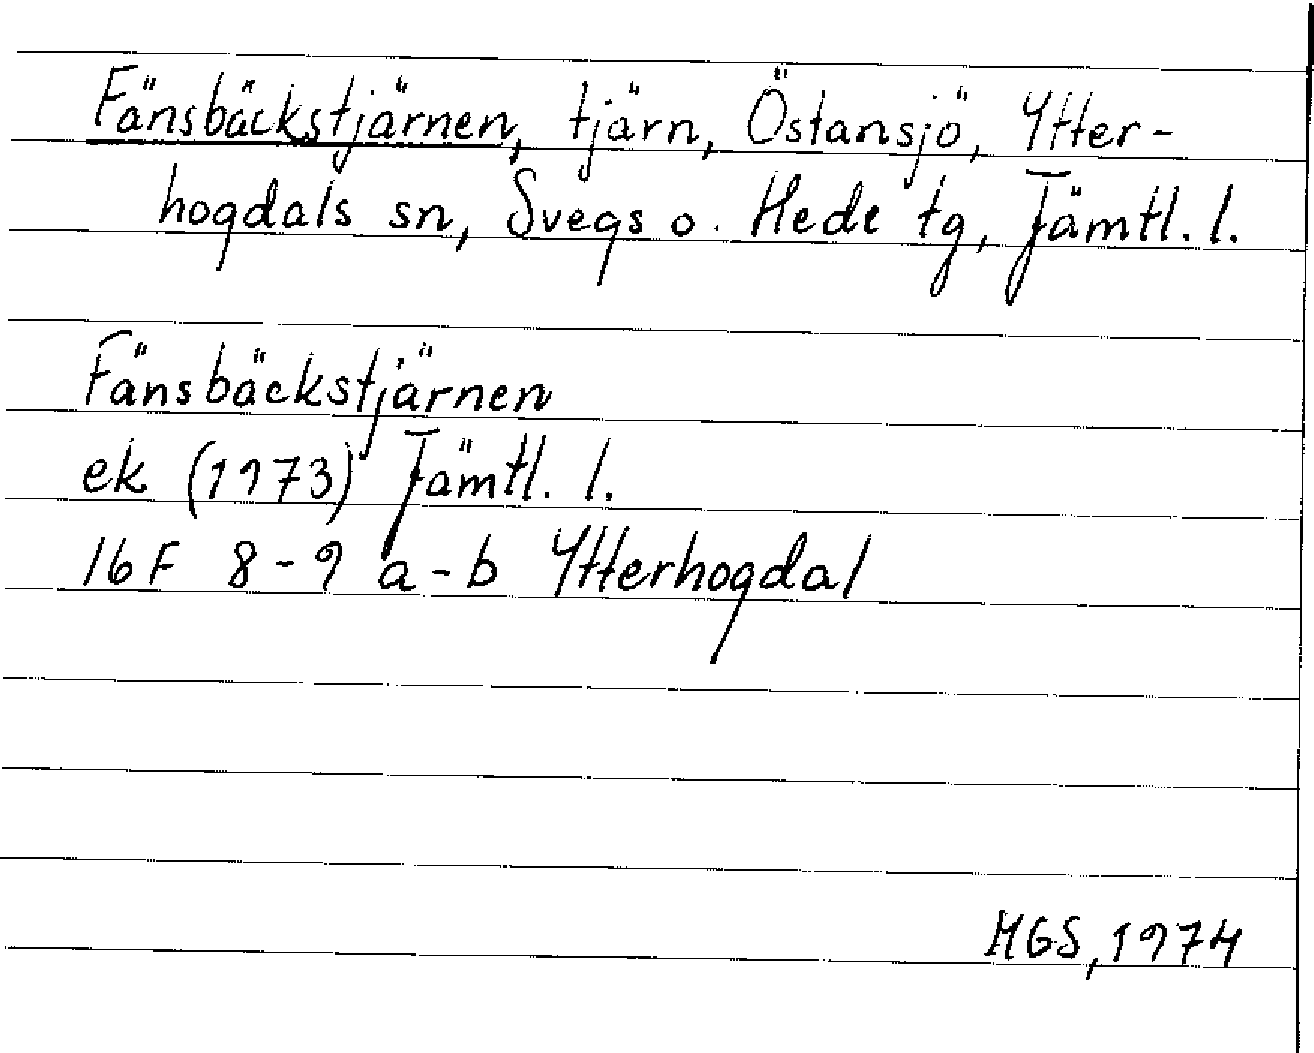 Fänsbäckstjärnen, tjärn, Östansjö, Ytter-
hogdals sn, Svegs o. Hede tg, Jämtl. l.
Fänsbäckstjärnen
ek (1973) Jämtl. l.
16F 8-9 a-b Ytterhogdal
MGS, 1974